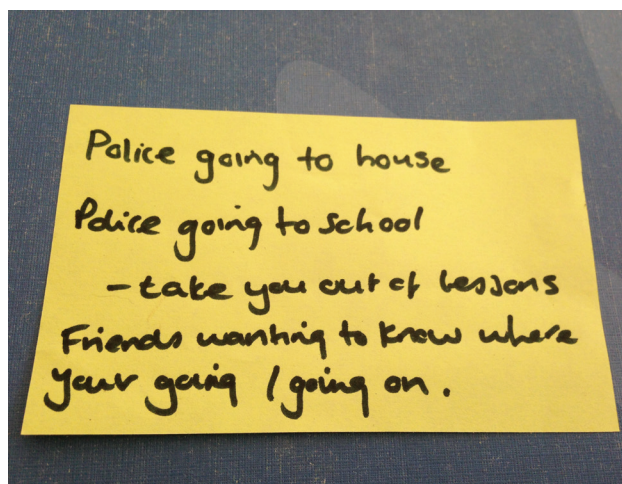 Police going to house
Police going to school
- take you out of lessons
Friends wanting to know where
your going / going on.